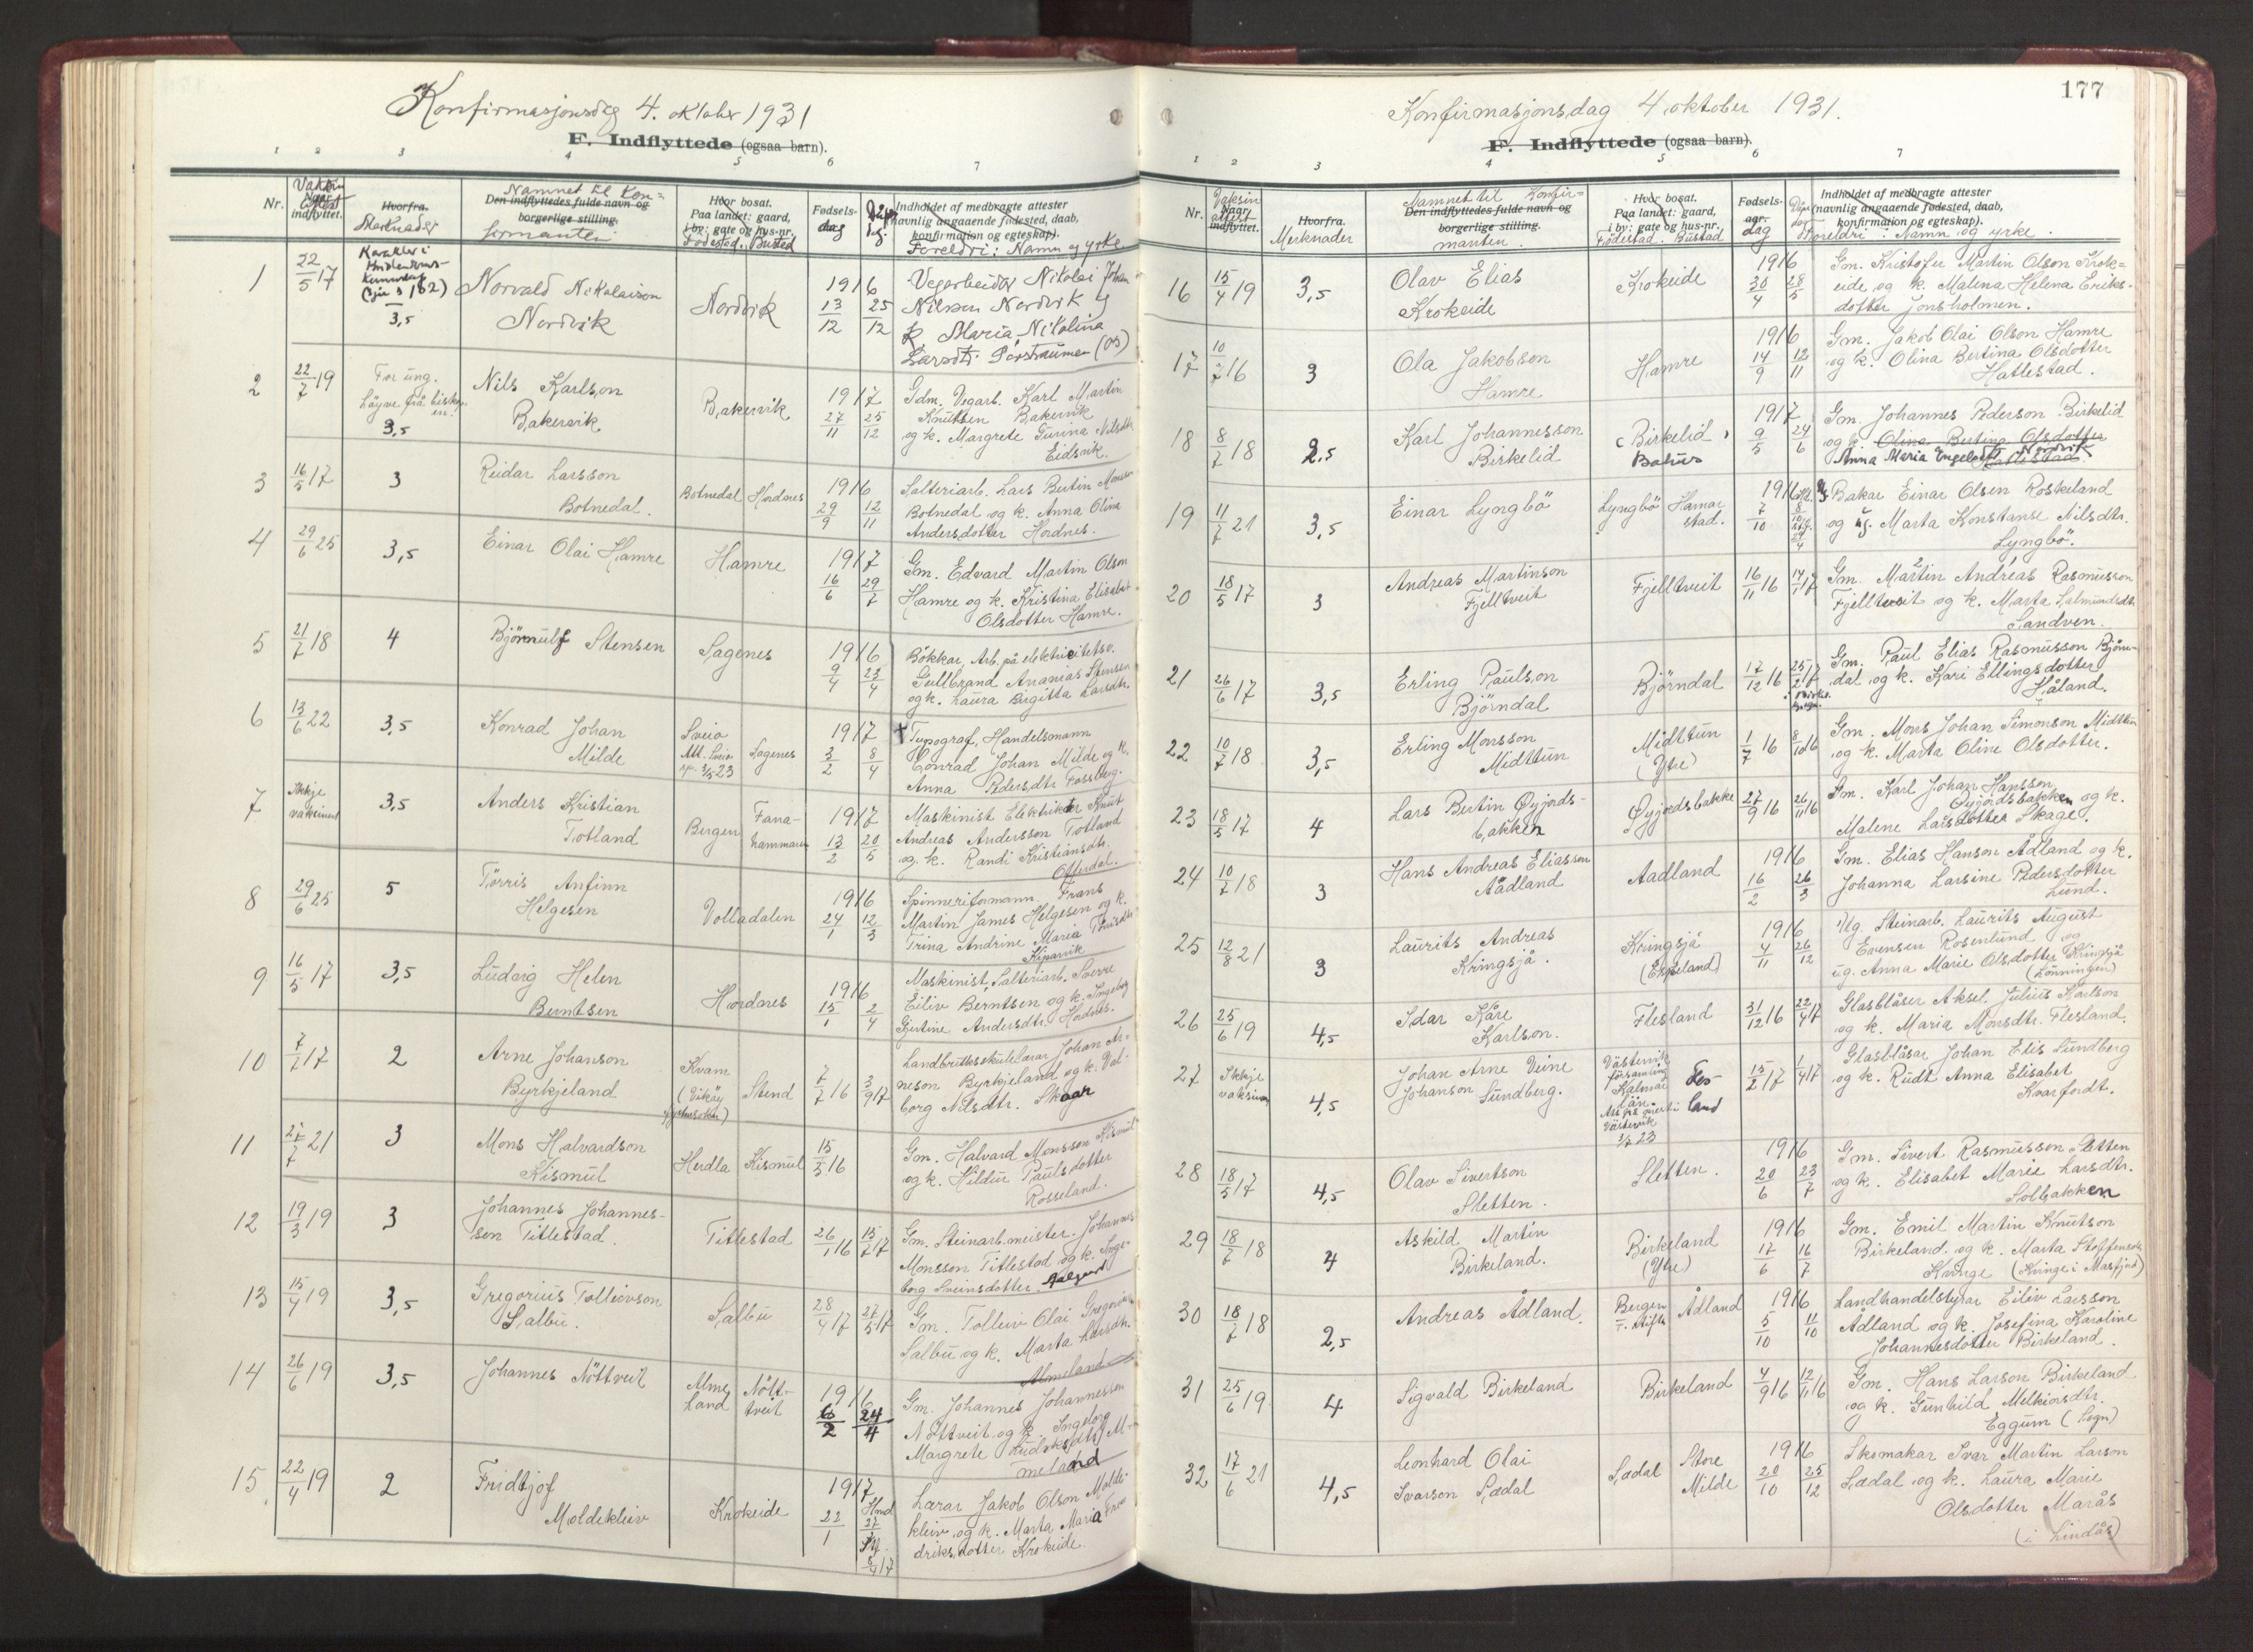 Konfirmasjonsdag 4. oktober 1931
F. Indflyttede (ogsaa barn).
1 2 3 4 5 6 7
Nr.
Vaksin attest
Naar indflyttet.
Hvorfra.
Merknader
Namnet til Kon=
Den indflyttedes fulde navn og
borgerlige stilling.
firmanten
Hvor bosat.
Paa landet: gaard,
i by: gate og hus-nr.
Fødestad. Bustad
Fødsels-
dag
Indholdet af medbragte attester
(navnlig angaaende fødested, daab,
konfirmation og egteskap).
Foreldri: Namn og yrke
1
22/5 17
Karakter i
kunnskap
(sjå s 182)
3,5
Norvald Nikolaison
Nordvik
Nordvik
1916
13/12 25/12
Vegarbeidar Nikolai Johan
Nilsen Nordvik og
k. Maria Nikolina
Larsdtr. Porstraumen (Os)
2
22/7 19
For ung.
Løyve frå bisko-
en.
3,5
Nils Karlson
Bakervik
Bakervik
1917
27/11 25/12
Gdm. Vegarb. Karl Martin
Knutsen Bakervik
og k. Margrete Gurina Nilsdtr.
Eidsvik.
3
16/5 17
3
Reidar Larsson
Botnedal.
Botnedal Hordnes
1916
29/9 12/11
Salteriarb. Lars Bertin Monsen
Botnedal og k. Anna Olina
Andersdotter Hordnes.
4
29/6 25
3,5
Einar Olai Hamre
Hamre
1917
16/6 29/7
Gm. Edvard Martin Olson
Hamre og k. Kristina Elisabet
Olsdotter Hamre.
5
21/7 18
4
Bjørnulf Stensen
Sagenes
1916
9/4 23/4
Bökkar, Arb. på elektricitetsv.
Gullbrand Ananias Stensen
og k. Laura Birgitta Larsdtr.
6
13/6 22
3,5
Konrad Johan
Milde
Sveio
Att. Sveio
3/5 23
Sagenes
1917
3/2 8/4
† Typograf, Handelsmann
Conrad Johan Milde og k.
Anna Pedersdtr. Fossberg.
7
Ikkje
vaksinert
3,5
Anders Kristian
Totland
Bergen Fana-
hammaren
1917
13/2 20/5
Maskinist Elektriker Knut
Andreas Andersson Totland
og k. Randi Kristiansdtr.
Otterdal.
8
29/6 25
5
Tørris Anfinn
Helgesen
Volladalen
1916
24/1 12/3
Spinneriformann Frans
Martin James Helgesen og k.
Trina Andrine Maria Tørrisdtr.
Kiparvik
9
16/5 17
3,5
Ludvig Helen
Berntsen
Hordnes
1916
15/1 2/4
Maskinist, Salteriarb. Sverre
Eiliv Berntsen og k. Ingeborg
Gjertine Andersdtr. Hordnes.
10
7/7 17
2
Arne Johanson
Byrkjeland
Kvam
(Vikøy
Stend
7/7 16 3/9 17
Landbruksskulelærar Johan Ar-
neson Byrkjeland og k. Val-
borg Nilsdtr. Skaar
11
27/7 21
3
Mons Halvardson
Kismul
Herdla Kismul
15/5 16
Gm. Halvard Monsson Kismul
og k. Hildur Paulsdotter
Rosseland.
12
19/3 19
3
Johannes Johannes-
sen Titlestad.
Titlestad
26/1 16 15/7 17
Gm. Steinarb.meister. Johannes
Monsson Titlestad og k. Inge-
borg Sveinsdotter Aalgard
13
15/4 19
3,5
Gregorius Tolleivson
Salbu.
Salbu
28/4 17 27/5 17
Gm. Tolleiv Olai Gregorius
Salbu og k. Marta Larsdtr.
Almeland
14
26/6 19
3,5
Johannes Nöttveit
Alme
land
Nött-
tveit
1916
6/2 24/4
Gm. Johannes Johannessen
Nöttveit og k. Ingeborg
Margrete Ludviksdtr. Al-
meland
15
22/4 19
2
Fridtjof
Moldekleiv
Krokeide
1917
22/1
Hmd
27/1
Stf.
8/4 17
Lærar Jakob Olson Molde-
kleiv og k. Marta Maria Fred
driksdotter Krokeide.
177
Konfirmasjonsdag 4. oktober 1931.
F. Indflyttede (ogsaa barn).
1 2 3 4 5 6 7
Nr.
Vaksin
attest
Naar
indflyttet.
Hvorfra.
Merknader
Namnet til Konfir=
Den indflyttedes fulde navn og
borgerlige stilling.
manten.
Hvor bosat.
Paa landet: gaard,
i by: gate og hus-nr.
Fødestad. Bustad
Fødsels-
aar.
dag
Indholdet af medbragte attester
(navnlig angaaende fødested, daab,
konfirmation og egteskap).
Foreldri: Namn og yrke.
16
15/4 19
3,5
Olav Elias
Krokeide
Krokeide
1916
30/4 28/5
Gm. Kristofer Martin Olson Krok=
eide og k. Malena Helena Eriks-
dotter Jonsholmen.
17
10/7 16
3
Ola Jakobson
Hamre
Hamre
1916
14/9 12/11
Gm. Jakob Olai Olson Hamre
og k. Olina Bertina Olsdotter
Hatlestad.
18
8/7 18
2,5
Karl Johannesson
Birkelid
Birkelid
Bahus
1917
9/5 24/6
Gm. Johannes Pederson Birkelid
og k. Olina Bertina Olsdotter
Anna Maria Engelsdtr. Nordvik
Hatlestad.
19
11/7 21
3,5
Einar Lyngbö
Lyngbö Hamar
stad.
1916
7/10
Hd.
8/10
Stf.
29/4
Bakar Einar Olsen Roskeland
og ug. Marta Konstanse Nilsdtr.
Lyngbö.
20
18/5 17
3
Andreas Martinson
Fjelltveit
Fjelltveit
16/11 16 14/1 17
Gm. Martin Andreas Rasmusson
Fjelltveit og k. Marta Salmundsdtr.
Sandven.
21
26/6 17
3,5
Erling Paulson
Björndal
Björndal
17/12 16 25/2 17
Gm. Paul Elias Rasmusson Björn-
dal og k. Kari Ellingsdotter
Håland.
22
10/7 18
3,5
Erling Monsson
Midttun
Midttun
(Ytre)
1/7 16 8/10 16
Gm. Mons Johan Simonson Midttun
og k. Marta Oline Olsdotter.
23
18/5 17
4
Lars Bertin Øyjords-
bakken
Øyjordsbakke
27/9 16 26/11 16
Gm. Karl Johan Hansson
Øyjordsbakken og k.
Malene Larsdotter Skage.
24
10/7 18
3
Hans Andreas Eliasson
Aadland
Aadland
1916
16/2 26/3
Gm. Elias Hanson Ådland og k.
Johanna Larsine Pedersdotter
Lund.
25
12/8 21
3
Laurits Andreas
Kringsjå.
Kringsjå
(Espeland)
1916
4/11 26/12
Ug. Steinarb. Laurits August
Evensen Rosenlund og
ug. Anna Marie Olsdotter Kringsjå
(Lönningen)
26
25/6 19
4,5
Idar Kåre
Karlson.
Flesland
31/12 16 22/4 17
Glasblåser Aksel Julius Karlson
og k. Maria Monsdtr. Flesland.
27
Ikkje
vaksinert
4,5
Johan Arne Veine
Johanson Sundberg.
Västervik
församling
Kalmar
län.
Västervik
3/2 23
Fles-
land
15/2 17 1/4 17
Glasblåsar Johan Elis Sundberg
og k. Rudt Anna Elisabet
Kvarfordt.
28
18/5 17
4,5
Olav Sivertson
Sletten.
Sletten.
1916
20/6 23/7
Gm. Sivert Rasmusson Sletten
og k. Elisabet Marie Larsdtr.
Solbakken
29
18/7 18
4
Askild Martin
Birkeland.
Birkeland
(Ytre)
1916
17/6 16/7
Gm. Emil Martin Knutson
Birkeland og k. Marta Stoffensdtr.
Kvinge (Kvinge i Masfjord)
30
18/7 18
2,5
Andreas Ådland.
Bergen
F. stift.
Ådland
1916
5/10 11/10
Landhandelstyrar Eiliv Larsson
Ådland og k. Josefina Karoline
Johannesdotter Birkeland.
31
25/6 19
4
Sigvald Birkeland
Birkeland
4/9 16 12/11 16
Gm. Hans Larson Birkeland
og k. Gunhild Melkiorsdtr.
Eggum (Sogn)
32
17/6 21
4,5
Leonhard Olai
Ivarson Sædal
Sædal Store
Milde
1916
20/10 25/12
Skomakar Ivar Martin Larson
Sædal og k. Laura Marie
Olsdotter Marås
(i Lindås)